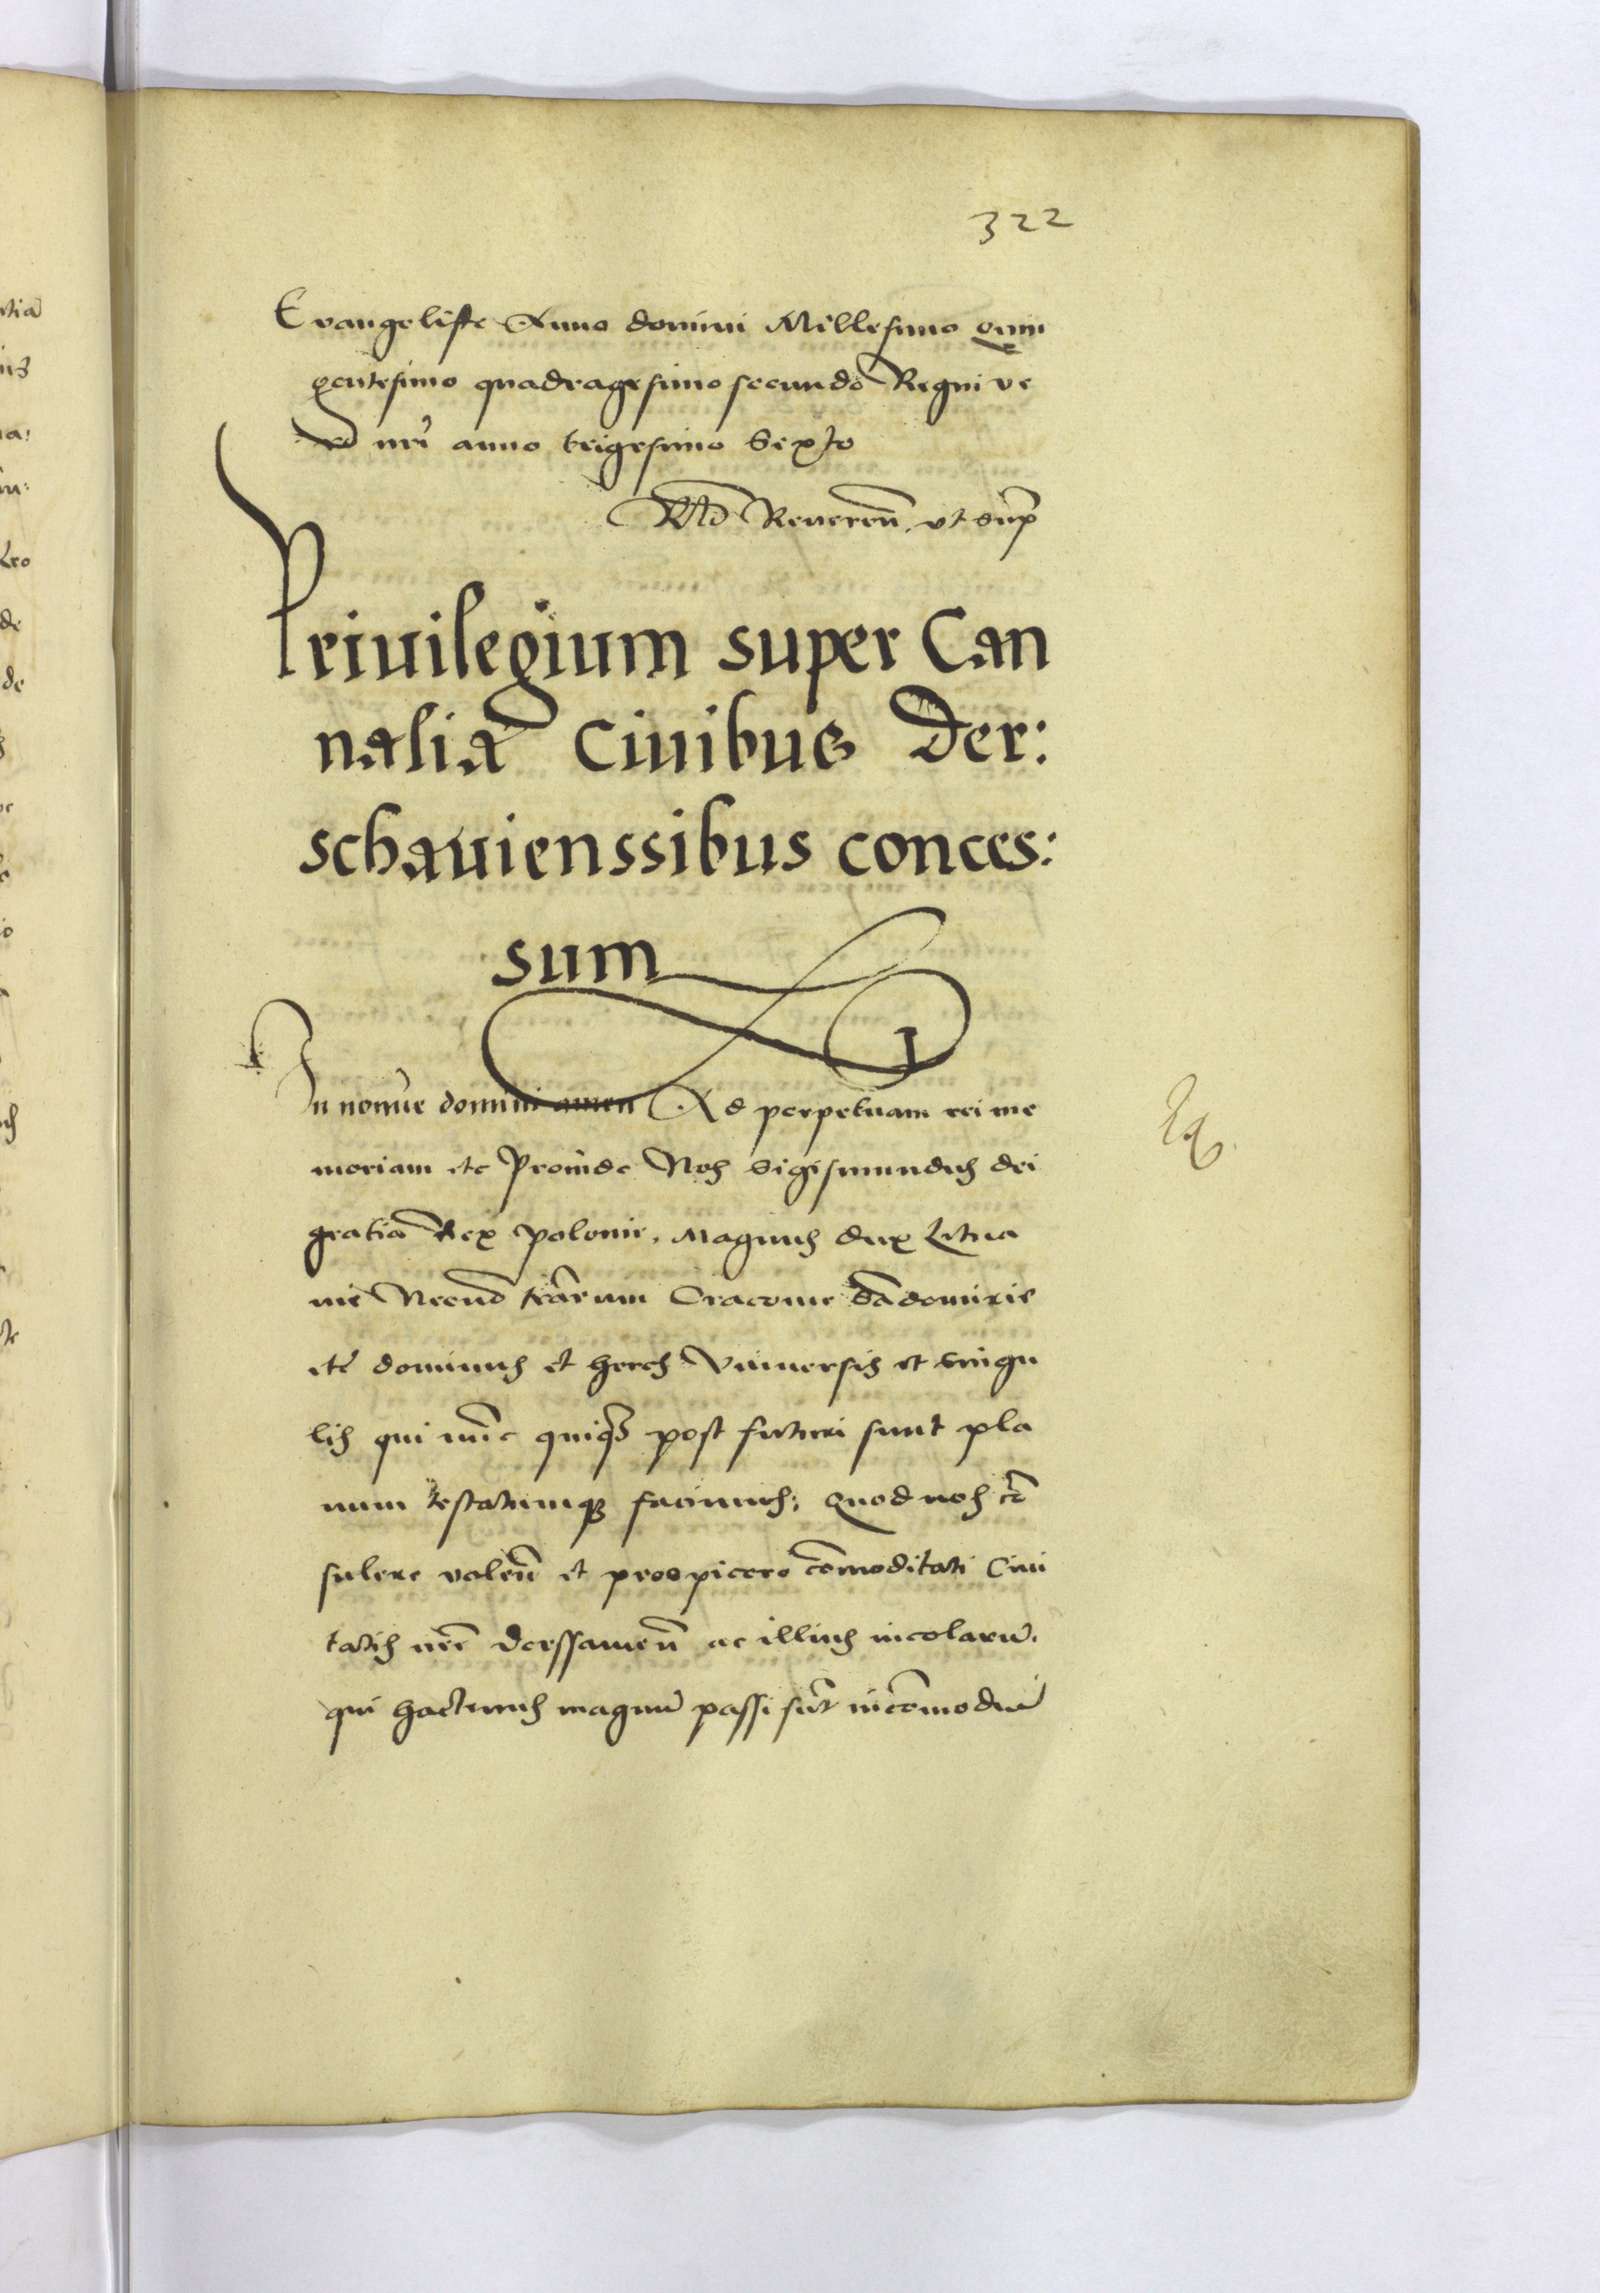 322
Evangeliste Anno domini Millesimo quin
gentesimo quadragesimo secundo Regni ve
ro nrī anno trigesimo Sexto
Reveren̄. vt sup̄
Priuilegium super Can
nalia Ciuibus Der:
schauienssibus conces:
sum
In nom̄e domini amen Ad perpetuam rei me
moriam etc Proinde Nos Sigismundus dei
gratia Rex Polonie, Magnus dux Litua
nie Necnō terrārum Cracouie Sādomirie
etc̄ dominus et heres Vniuersis et singu
lis qui nūc quiqȝ post futuri sunt pla
num testatumqȝ facimus; Quod nos cō
sulere volen̄ et prospicere cōmoditati Ciui
tatis nrē Derssauien̄ ac illius incolarū.
qui hactenus magnū passi sūt incōmodū